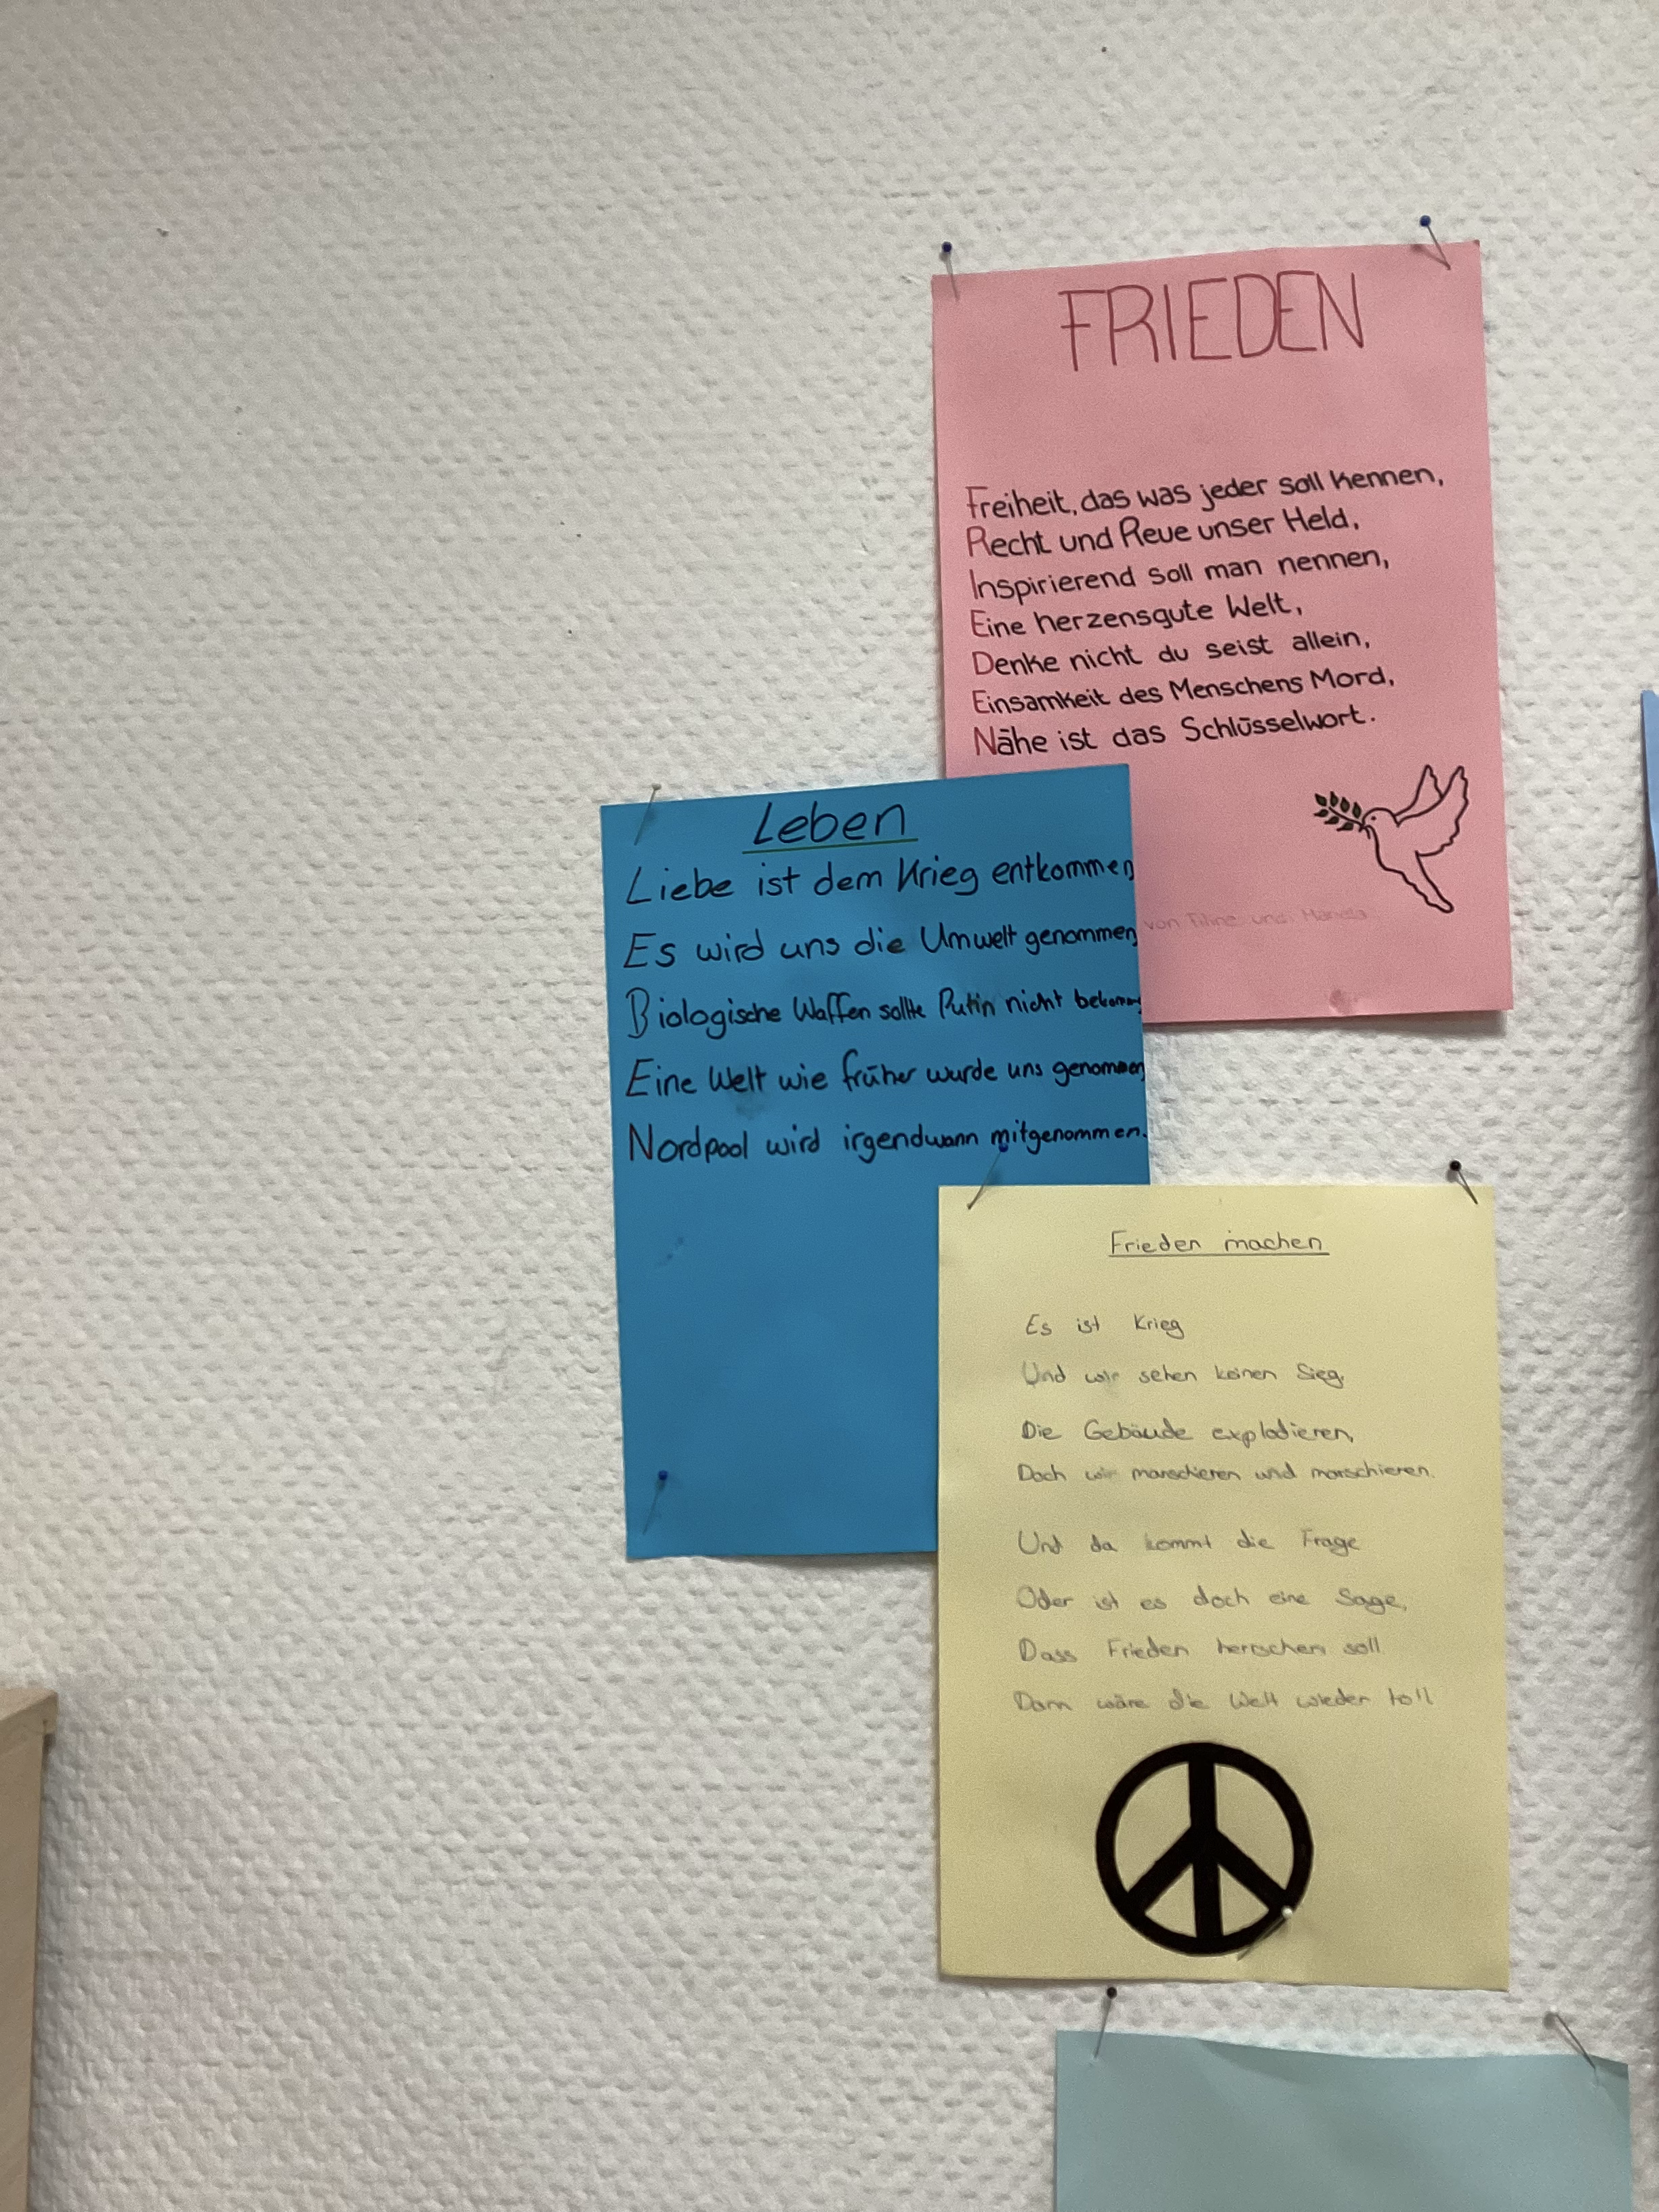 FRIEDEN
Freiheit, das was jeder soll kennen,
Recht und Reue unser Held,
Inspirierend soll man nennen,
Eine herzensgute Welt,
Denke nicht du seist allein,
Einsamkeit des Menschens Mord,
Nähe ist das Schlüsselwort.
von und
Leben
Liebe ist dem Krieg entkommen
Es wird uns die Umwelt genommen
Biologische Waffen sollte Putin nicht bekommen
Eine Welt wie früher wurde uns genommen
Nordpool wird irgendwann mitgenommen.
Frieden machen
Es ist Krieg
Und wir sehen keinen Sieg,
Die Gebäude explodieren,
Doch wir marschieren und marschieren.
Und da kommt die Frage
Oder ist es doch eine Sage,
Dass Frieden herrschen soll
Dann wäre die Welt wieder toll